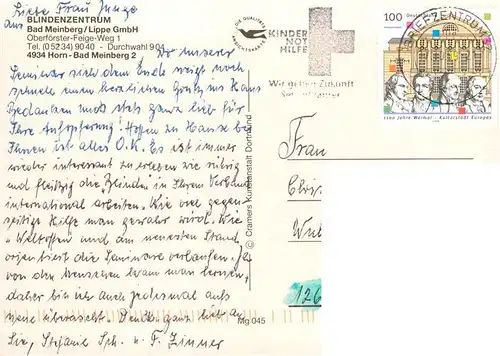 Liebe Frau Junge
Aus
BLINDENZENTRUM
Bad Meinberg / Lippe GmbH
Oberförster-Feige-Weg 1
Tel. (05234) 9040 - Durchwahl 904
4934 Horn - Bad Meinberg 2
wo unser
Seminar sich dem Ende neigt noch
schnell einen herzlichen Gruß ins Haus
Bedanken uns stets ganz lieb für
Ihre Aufopferung! Hoffen zu Hause bei
Ihnen ist alles O.K. Es ist immer
wieder interessant zu erleben wie rührig
und fleißig die Blinden in Ihrem Verband
international arbeiten. Wie viel gegen-
seitige Hilfe man gewahr wird. Wie
"Weltoffen" und am neuesten Stand
orientiert die Seminare verlaufen. Ja
von den Menschen kann man lernen,
daher bin ich auch jedesmal aufs
neue überrascht. Denke ganz lieb an
Sie, Stefanie Sch. u. F. Zinner
© Cramers Kunstanstalt Dortmund
Mg 045
DIE QUALITÄTS
ANSICHTSKARTE
KINDER
NOT
HILFE
Wir geben Zukunft
BRIEFZENTRUM
100
Deutschland
1100 Jahre Weimar - Kulturstadt Europas
Frau
126